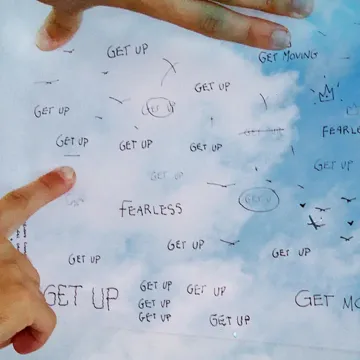 GET UP
GET MOVING
GET UP
GET UP
GET UP
GET UP
GET UP
GET UP
GET UP
GET UP
GET UP
FEARLESS
GET UP
GET UP
GET UP
GET UP
GET UP
GET UP
GET UP
GET UP
GET UP